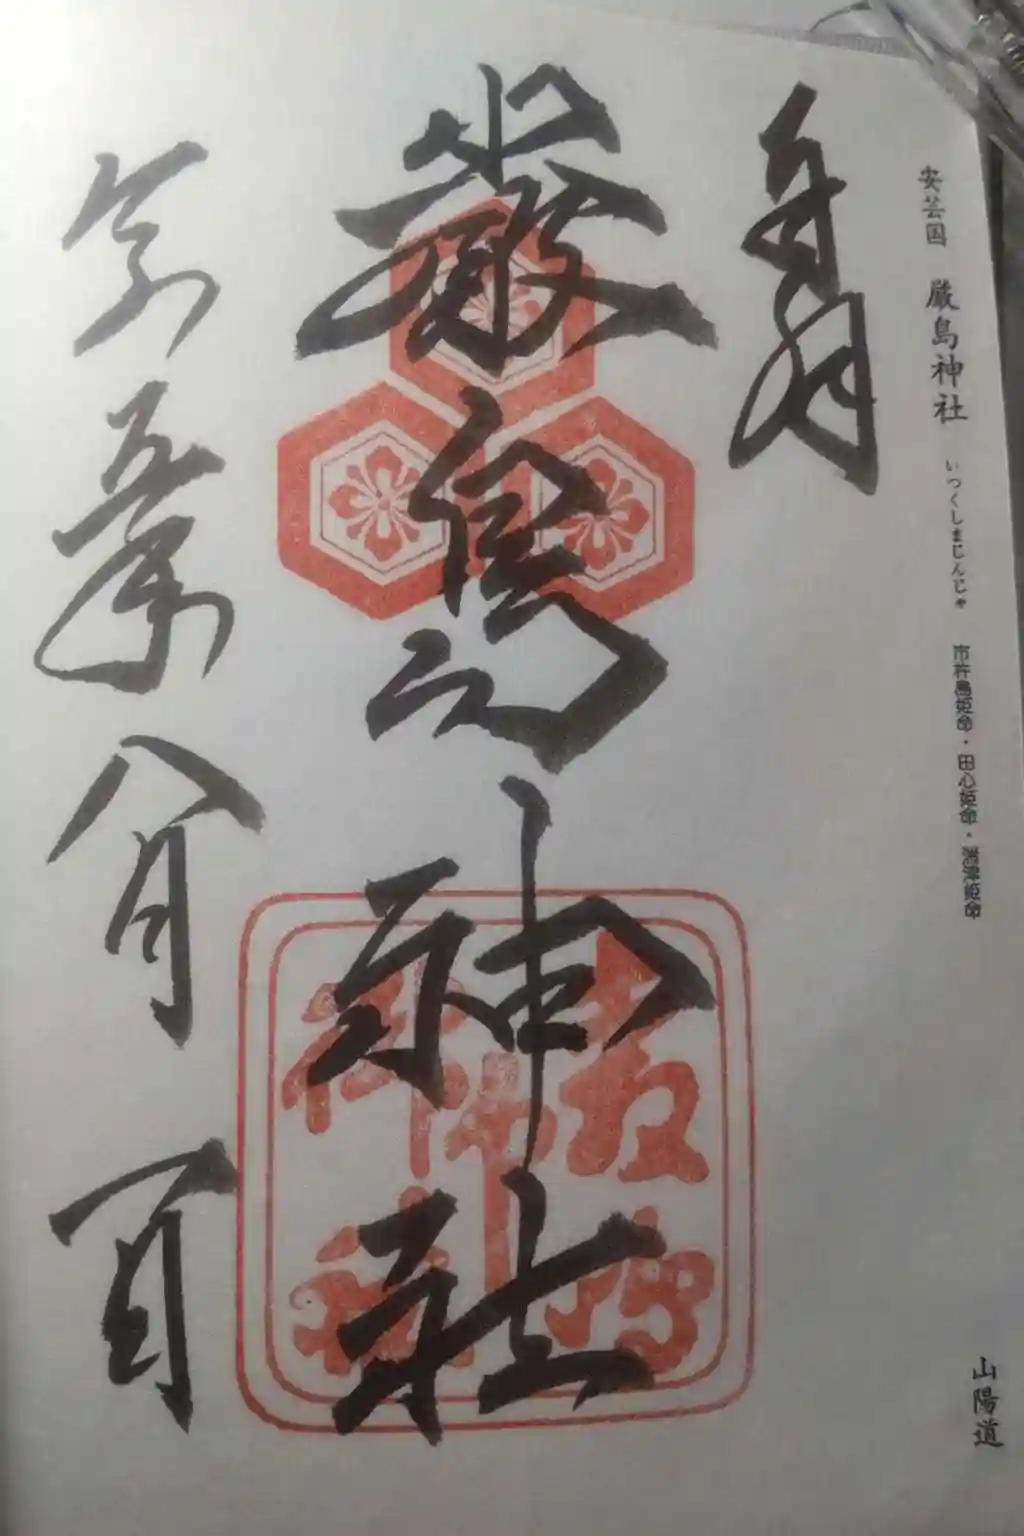 安芸国 厳島神社 いつくしまじんじゃ 市杵島姫命・田心姫命・湍津姫命
山陽道
奉拝
嚴島神社
令和五年八月一日